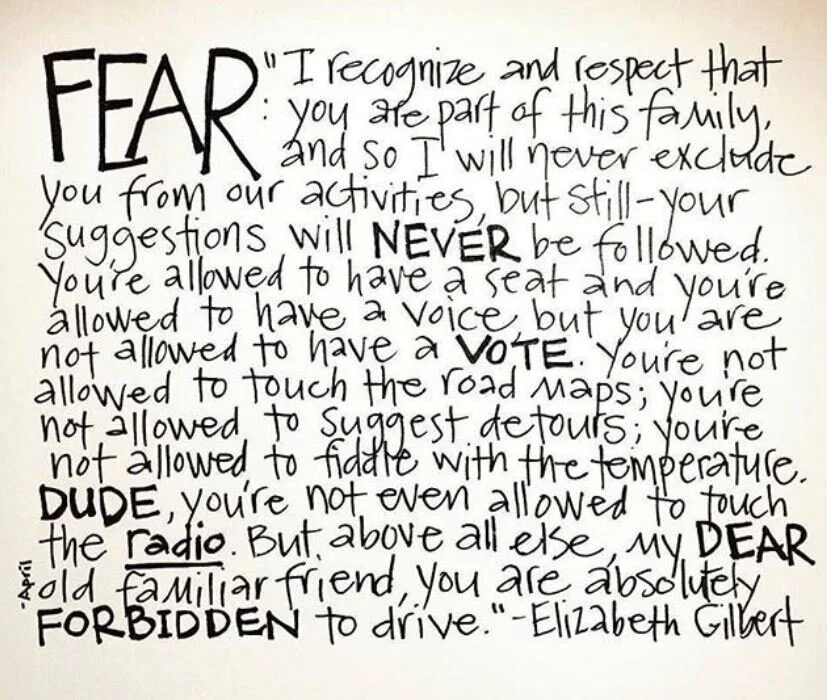 FEAR: "I recognize and respect that
you are part of this family,
and so I will never exclude
you from our activities, but still-your
suggestions will NEVER be followed.
You're allowed to have a seat and you're
allowed to have a voice, but you are
not allowed to have a VOTE. You're not
allowed to touch the road maps; you're
not allowed to suggest detours; you're
not allowed to fiddle with the temperature.
DUDE, you're not even allowed to touch
the radio. But, above all else, my DEAR
old familiar friend, you are absolutely
FORBIDDEN to drive." -Elizabeth Gilbert
-April